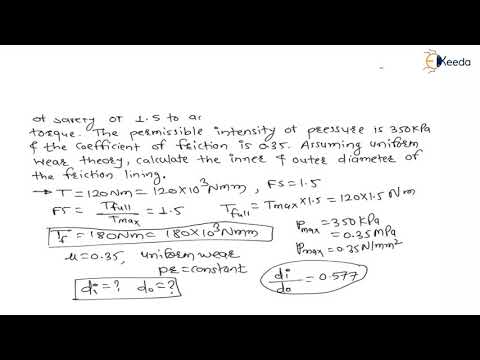 Ekeeda
of safety of 1.5 to ac
torque. The permissible intensity of pressure is 350kPa
& the coefficient of friction is 0.35. Assuming uniform
wear theory, calculate the inner & outer diameter of
the friction lining.
→ T = 120Nm = 120×10³Nmm , FS = 1.5
FS = Tfull/Tmax = 1.5 Tfull = Tmax×1.5 = 120×1.5 Nm
Tf = 180Nm = 180×10³Nmm
Pmax = 350kPa
= 0.35mPa
Pmax = 0.35N/mm²
μ = 0.35, uniform wear
pr = constant
di = ? do = ?
di/do = 0.577